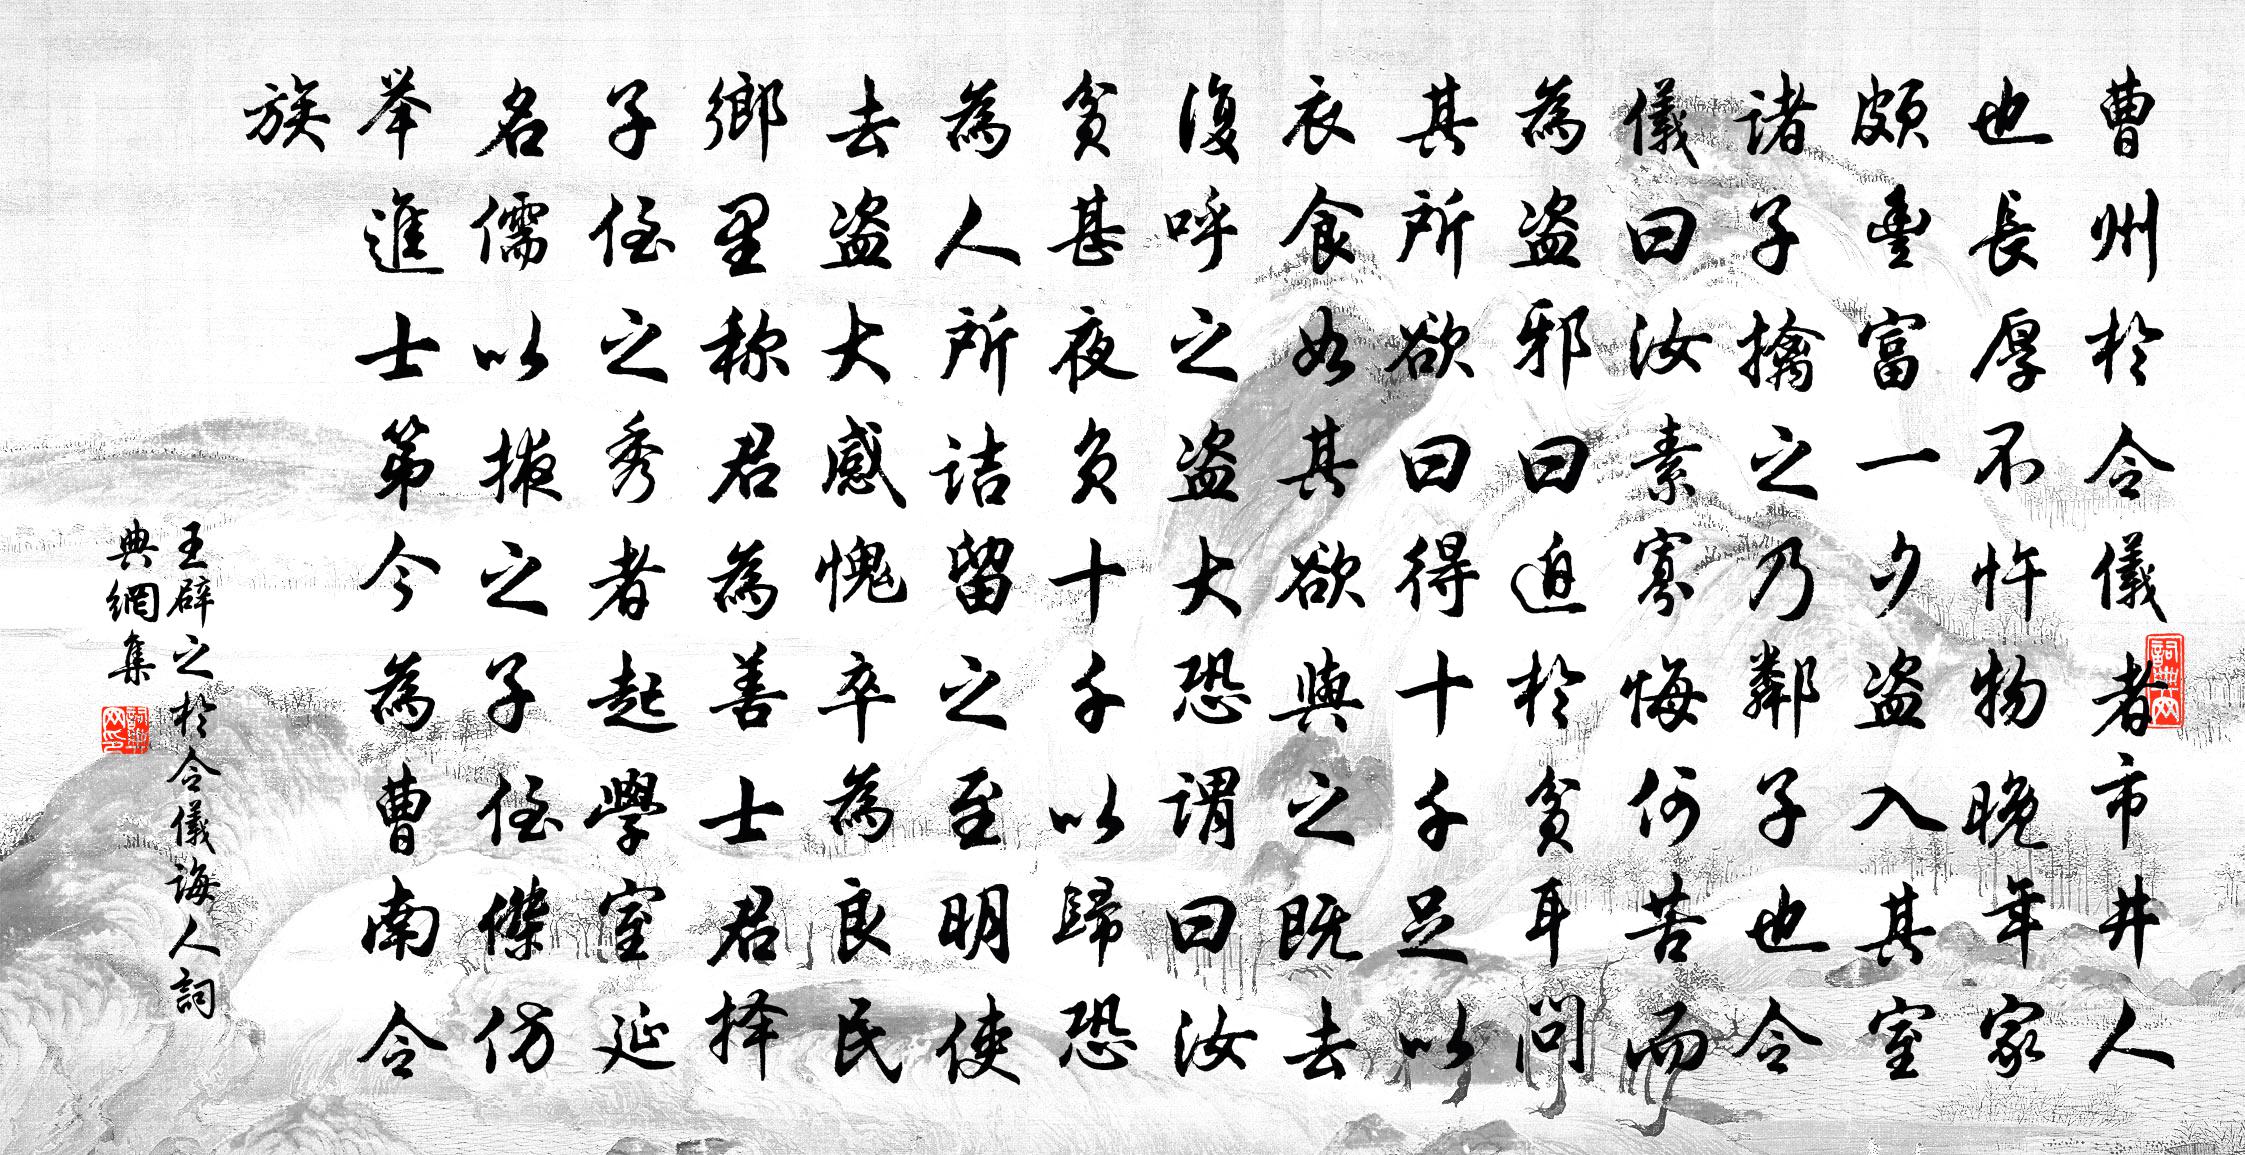 曹州於令儀者市井人
也長厚不忤物晚年家
頗豐富一夕盗入其室
諸子擒之乃鄰子也令
儀曰汝素寡悔何苦而
為盗邪曰迫於貧耳問
其所欲曰得十千足以
衣食如其欲與之既去
復呼之盗大恐謂曰汝
貧甚夜負十千以歸恐
為人所詰留之至明使
去盗大感愧卒為良民
鄉里称君為善士君择
子侄之秀者起學室延
名儒以掖之子侄傑仿
举進士第今為曹南令
族
王辟之於令儀誨人詞
典網集
詞典网